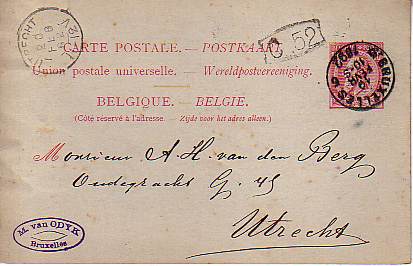 CARTE POSTALE. — POSTKAART.
G. 52
Union postale universelle. — Wereldpostvereeniging.
BELGIQUE. — BELGIE.
(Côté réservé à l'adresse. — Zijde voor het adres alleen.)
BRUXELLES
Monsieur A. H. van den Berg
Oudegracht G. 45
Utrecht
M. van ODYK
Bruxelles